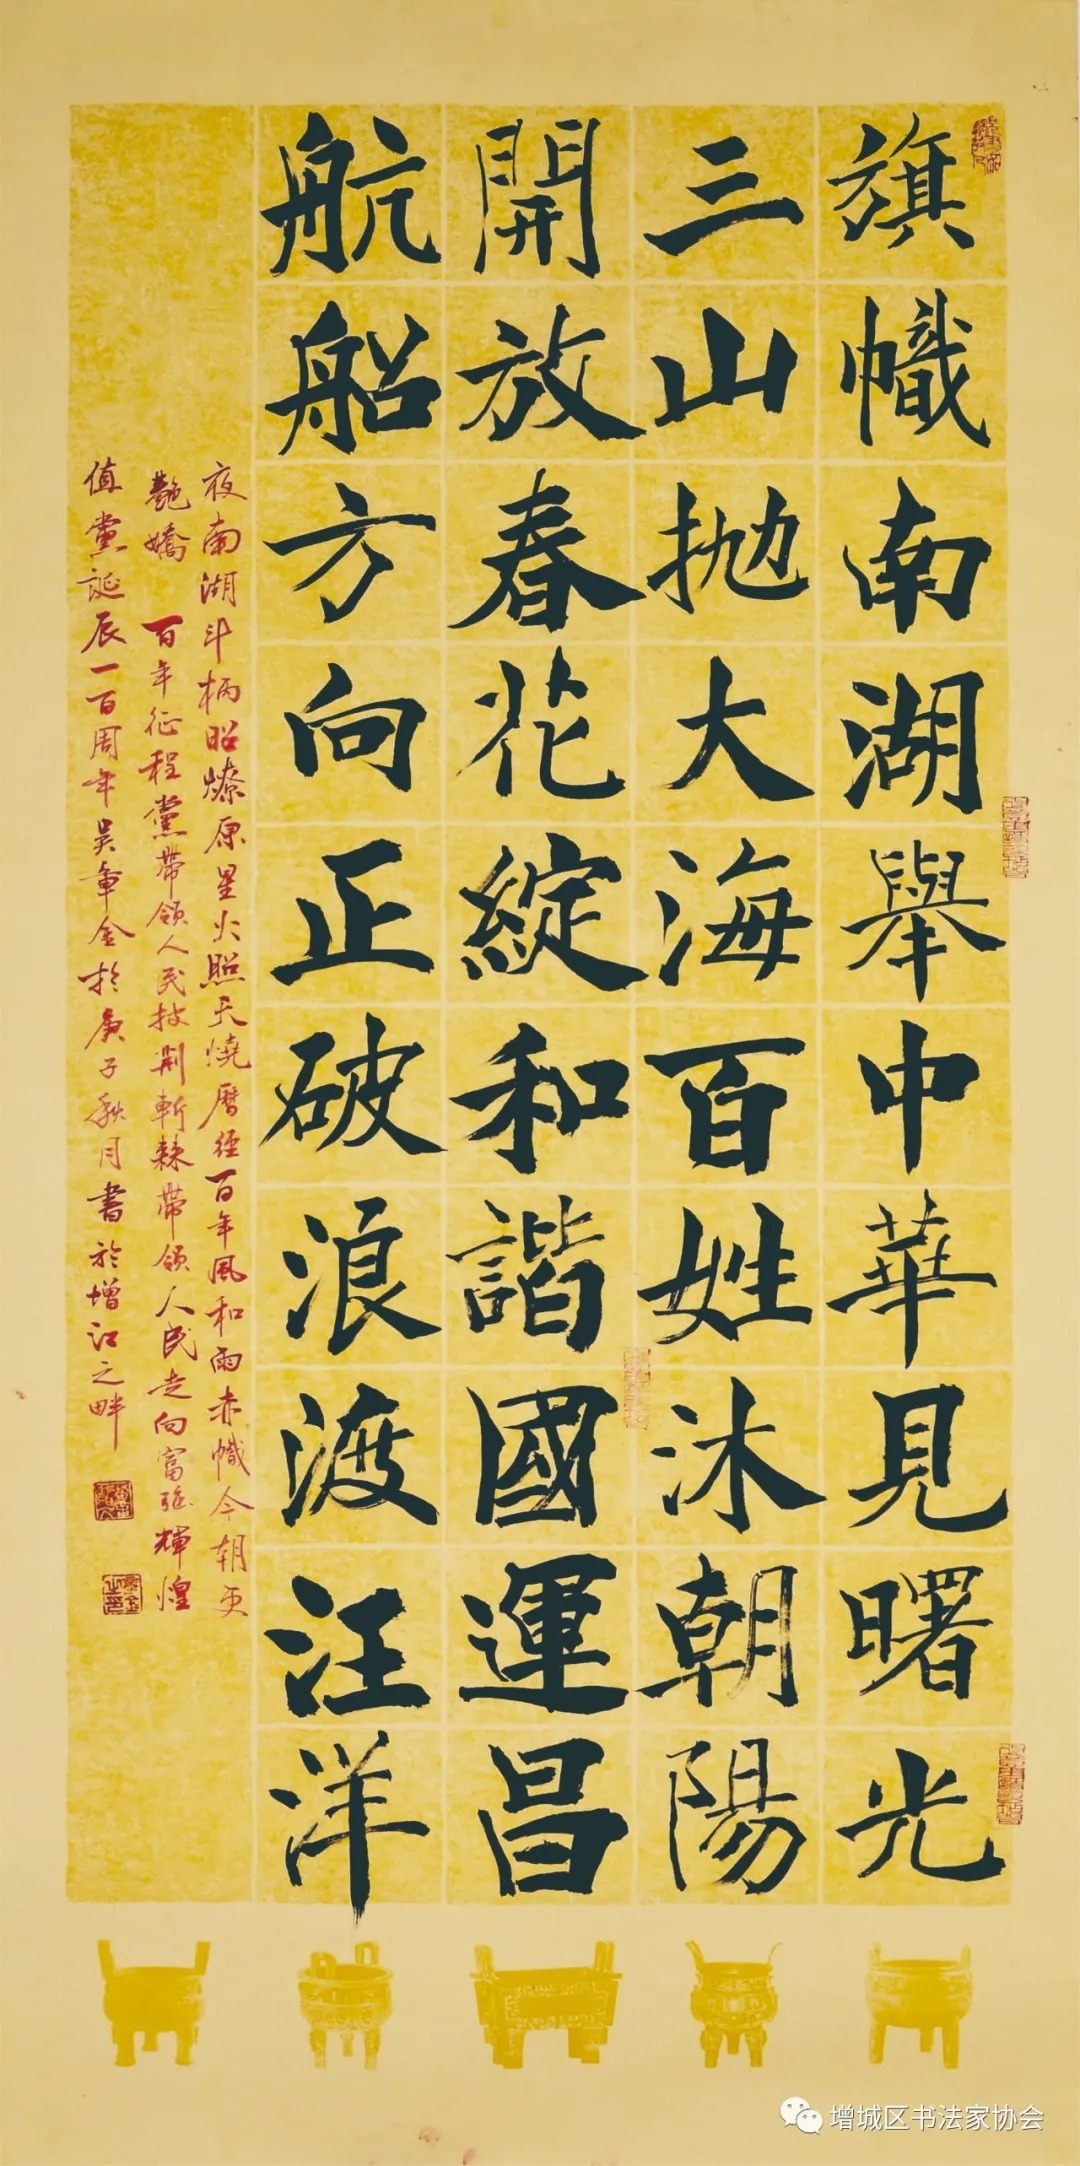 旗幟南湖舉中華見曙光
三山抛大海百姓沐朝陽
開放春花綻和諧國運昌
航船方向正破浪渡汪洋
夜南湖斗柄昭燎原星火照天燒曆經百年風和雨赤幟今朝更
艷嬌 百年征程黨帶領人民披荆斬棘帶領人民走向富強輝煌
值黨誕辰一百周年吴章金於庚子秋月書於增江之畔
增城区书法家协会